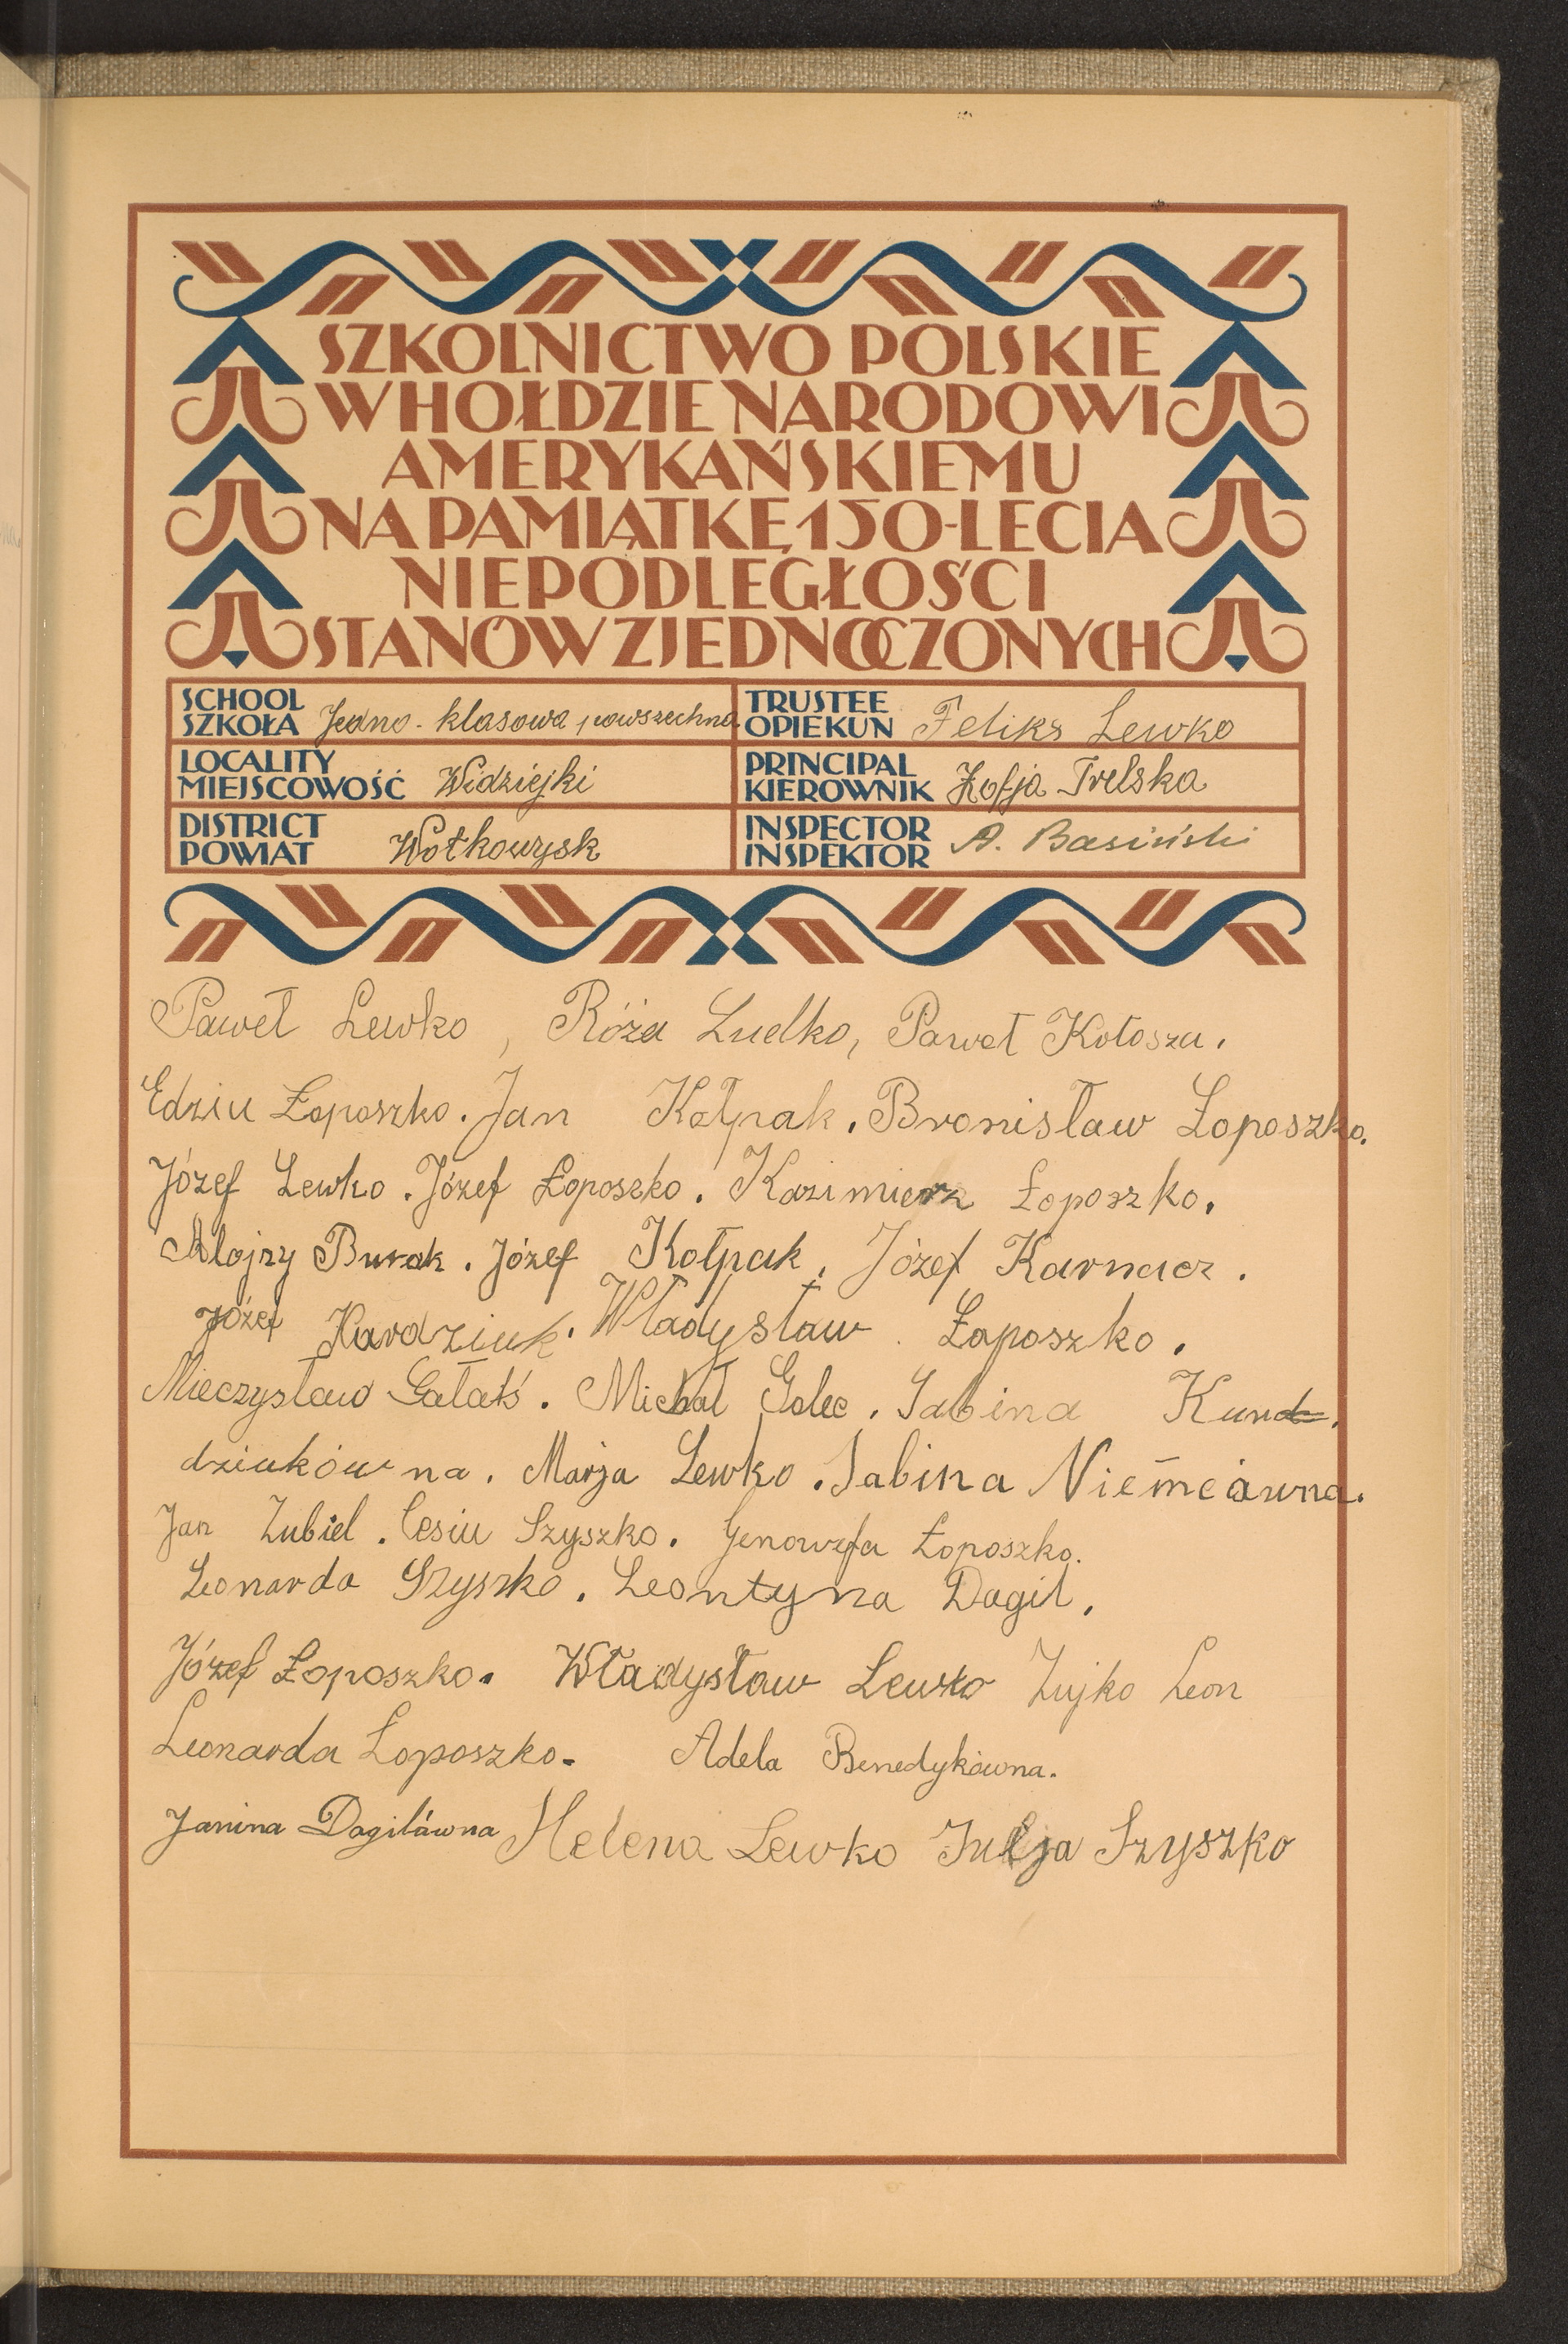 SZKOLNICTWO POLSKIE
W HOŁDZIE NARODOWI
AMERYKAŃSKIEMU
NA PAMIĄTKĘ 150-LECIA
NIEPODLEGŁOŚCI
STANÓW ZJEDNOCZONYCH
SCHOOL
SZKOŁA Jedno-klasowa powszechna
TRUSTEE
OPIEKUN Feliks Lewko
LOCALITY
MIEJSCOWOŚĆ Widziejki
PRINCIPAL
KIEROWNIK Zofja Trelska
DISTRICT
POWIAT Wołkowysk
INSPECTOR
INSPEKTOR A. Basiński
Paweł Lewko, Róża Luelko, Paweł Kołosza.
Edziu Łoposzko. Jan Kołpak. Bronisław Łoposzko.
Józef Lewko. Józef Łoposzko. Kazimierz Łoposzko.
Alojzy Burak. Józef Kołpak. Józef Karnacz.
Józef Kurdziuk. Władysław Łaposzko.
Mieczysław Gałaś. Michał Golec. Sabina Kund
dziukówna. Marja Lewko. Sabina Niemcówna.
Jan Zubiel. Cesiu Szyszko. Genowefa Łoposzko.
Leonarda Szyszko. Leontyna Dagil.
Józef Łoposzko. Władysław Lewko Zujko Leon
Leonarda Łoposzko. Adela Benedykówna.
Janina Dagilówna Helena Lewko Julja Szyszko